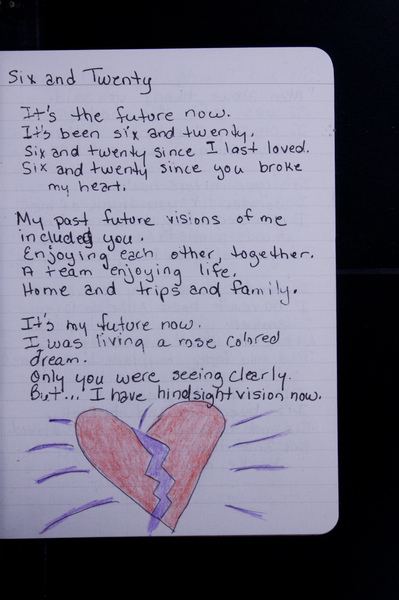 Six and Twenty
It's the future now.
It's been six and twenty.
Six and twenty since I last loved.
Six and twenty since you broke
my heart.
My past future visions of me
included you.
Enjoying each other, together.
A team enjoying life.
Home and trips and family.
It's my future now.
I was living a rose colored
dream.
Only you were seeing clearly.
But... I have hindsight vision now.